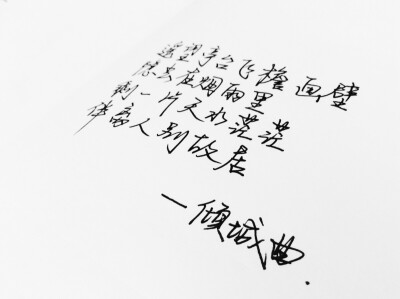 遥望亭台飞檐画壁
隐去在烟雨里
剩一片天水茫茫
伴离人别故居
—倾城曲.